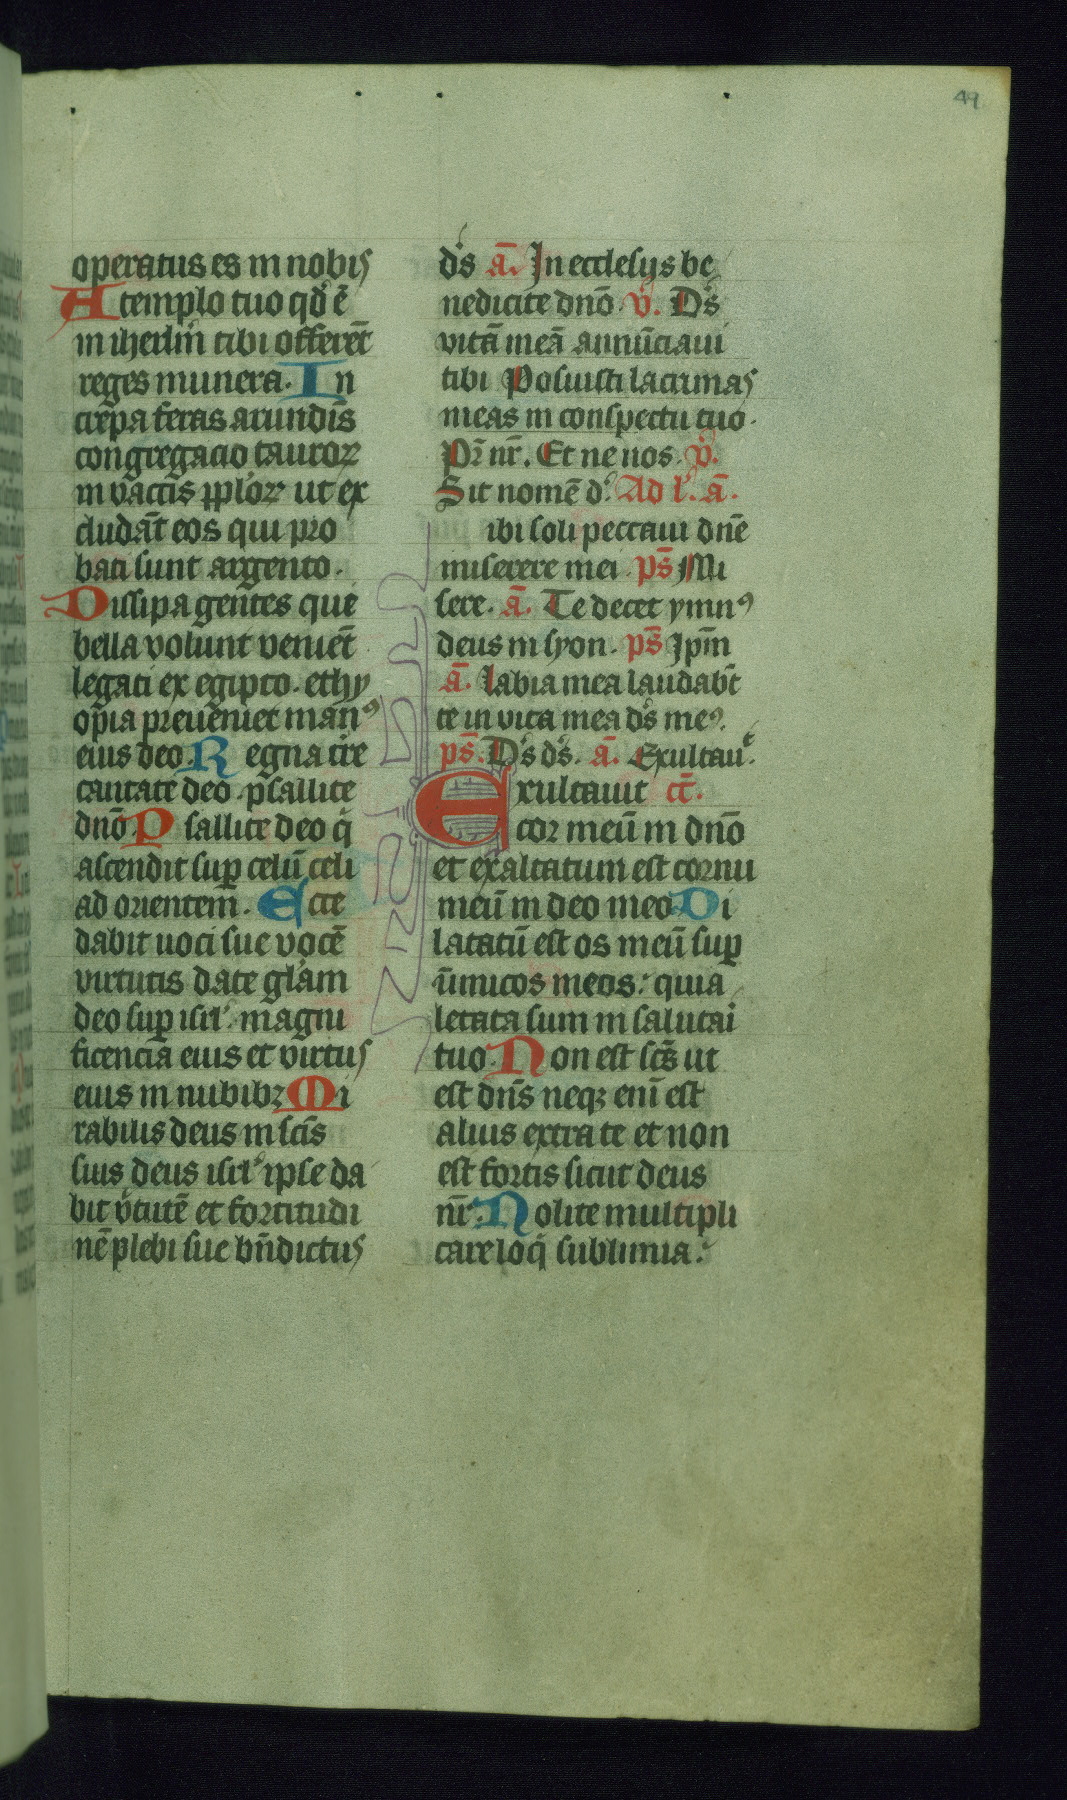 49
operatus es in nobis
A templo tuo qd ē
in iherlm tibi offerēt
reges munera. In
crepa feras arundīs
congregacio tauroꝝ
in vaccis pploꝝ ut ex
cludāt eos qui pro
bati sunt argento.
Dissipa gentes que
bella volunt venīet
legati ex egipto. ethy
opia preueniet manꝰ
eius deo. Regna t̄re
cantate deo. psallite
dnō Psallite deo q̄
ascendit suꝑ celū celi
ad orientem. Ecce
dabit uoci sue vocē
virtutis date glam
deo suꝑ isrl. magni
ficencia eius et virtus
eius in nubibꝫ Mi
rabilis deus in scis
suis deus isrl ipse da
bit v̄tutē et fortitudi
nē plebi sue bn̄dictus
ds ā. In ecclesijs be
nedicite dnō. v̄. Ds
vitā meā annūciaui
tibi Posuisti lacrimas
meas in conspectu tuo.
Pr̄ nr̄. Et ne nos. v̄.
Sit nomē d. Ad l. ā.
ibi soli peccaui dnē
miserere mei. ps̄ Mi
sere. ā. Te decet ymnꝰ
deus in syon. ps̄ Ipm̄
ā. Labia mea laudabt̄
te in vita mea ds meꝰ.
ps̄. Ds ds. ā. Exultauͭ.
Exultauit ct̄.
cor meū in dnō
et exaltatum est cornu
meū in deo meo Di
latatū est os meū suꝑ
īimicos meos: quia
letata sum in salutai
tuo. Non est scꝫ ut
est dn̄s neqꝫ enī est
alius extra te et non
est fortis sicut deus
nr̄. Nolite multipli
care loq̄ sublimia.